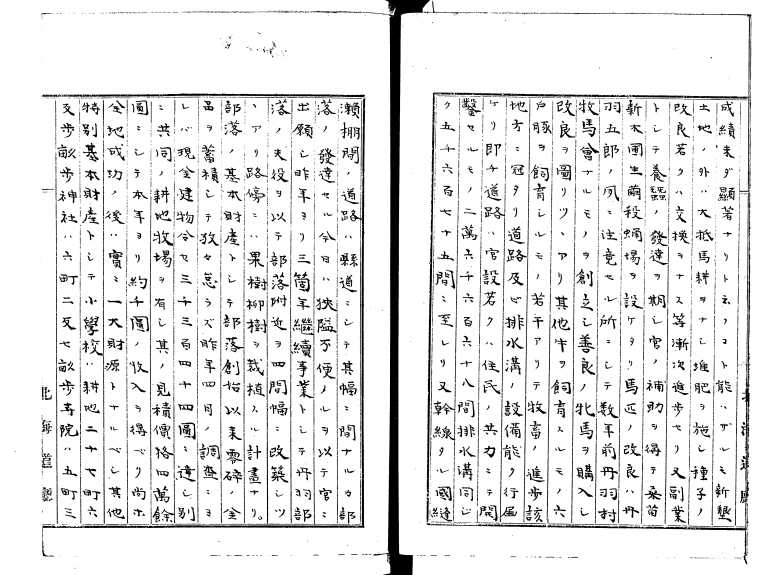 成績未ダ顕著ナリト云フコト能ハザルモ新墾
土地ノ外ハ大抵馬耕ヲナシ堆肥ヲ施シ種子ノ
改良若クハ交換ヲナス等漸次進歩セリ又副業
トシテ養蠶ノ発達ヲ期シ官ノ補助ヲ得テ桑苗
新大圃生繭殺蛹場ヲ設ケタリ馬匹ノ改良ハ丹
羽五郎ノ夙ニ注意セル所ニシテ数年前丹羽村
牧馬會ナルモノヲ創立シ善良ノ牝馬ヲ購入シ
改良ヲ圖リツヽアリ其他牛ヲ飼育スルモノ六
戸豚ヲ飼育シルモノ若干アリテ牧畜ノ進歩該
地方ニ冠タリ道路及ビ排水溝ノ設備能ク行届
ケリ即チ道路ハ官設若クハ住民ノ共力ニテ開
鑿セルモノ二萬六千六百六十八間排水溝同ジ
ク五千六百七十五間ニ至レリ又幹線タル國縫
瀬棚間ノ道路ハ縣道ニシテ其幅二間ナルカ部
落ノ發達セル今日ハ狭隘不便ノルヲ以テ官ニ
出願シ昨年ヨリ三箇年繼續事業トシテ丹羽部
落ノ夫役ヲ以テ部落附近ヲ四間幅ニ改築シツ
ヽアリ路傍ニハ果樹柳樹ヲ栽植スル計畫ナリ。
部落ノ基本財産トシテ部落創始以来零碎ノ金
品ヲ蓄積シテ孜々怠ラズ昨年四月ノ調査ニヨ
レバ現金建物合セ三千三百四十四圓ニ達シ別
ニ共同ノ耕地牧場ヲ有シ其ノ見積價格四萬餘
圓ニシテ本年ヨリ約千圓ノ收入ヲ得ベリ尚ホ
全地成功ノ後ハ實ニ一大財源トナルベシ其他
特別基本財産トシテ小學校ハ耕地二十七町六
反歩畝歩神社ハ六町二反七畝歩寺院ハ五町三
北海道廳